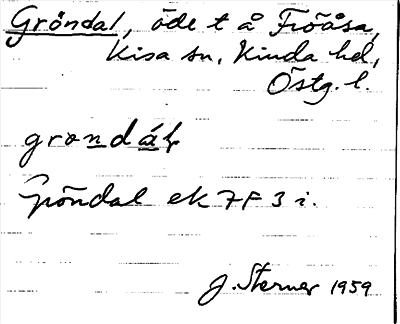 Gröndal, öde t å Fröåsa,
Kisa sn, Kinda hd,
Östg. l.
grondáḷ
Gröndal ek 7F 3 i.
J. Sterner 1959